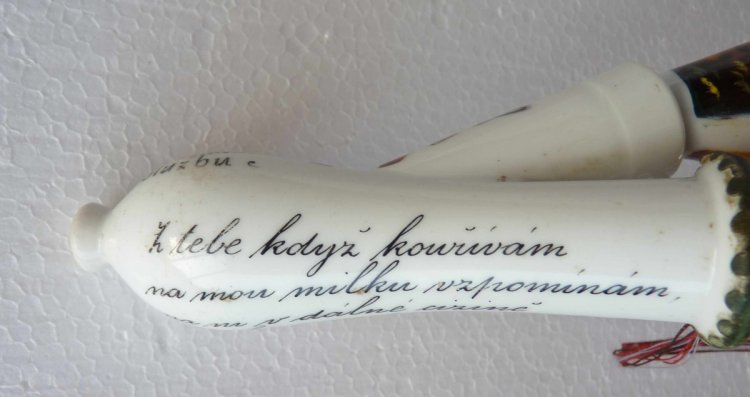 Z tebe když kouřívám
na mou milku vzpomínám,
v dálné cizině